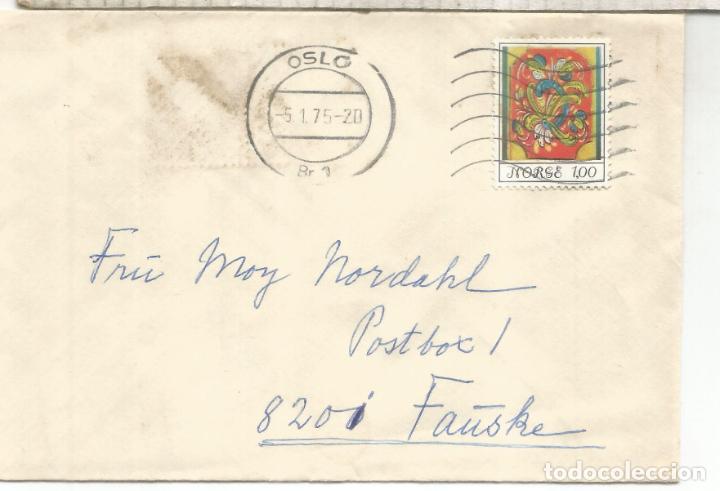 OSLO
-5.1.75-20
Br 1
NORGE 1,00
Frü Moy Nordahl
Postbox 1
8201 Faüske
todocoleccion
todocoleccion.net